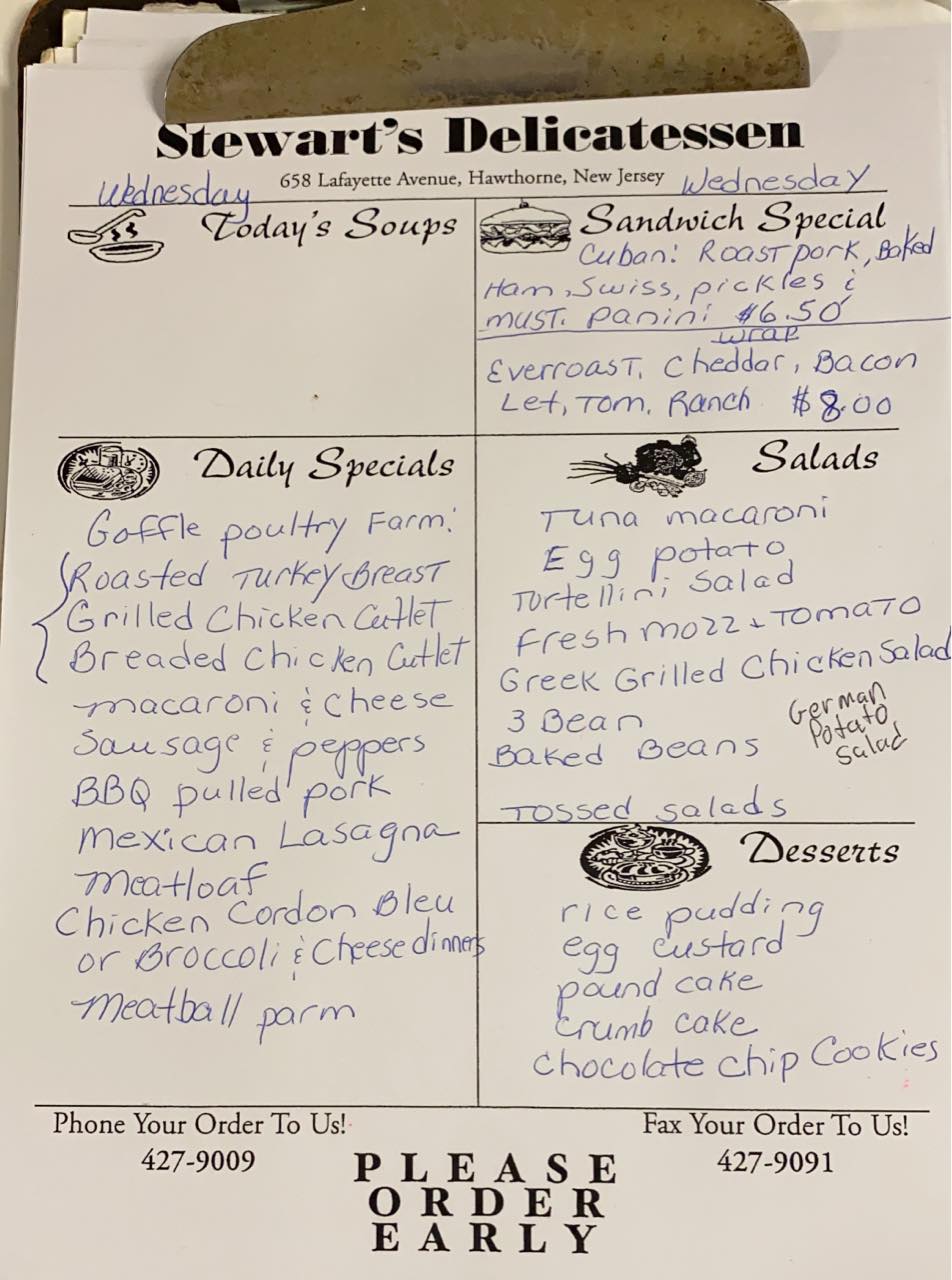 Stewart's Delicatessen
658 Lafayette Avenue, Hawthorne, New Jersey
Wednesday
Wednesday
Today's Soups
Sandwich Special
Cuban: Roast pork, Baked
Ham, Swiss, pickles &
must. panini $6.50
wrap
Everroast, Cheddar, Bacon
Let, Tom, Ranch $8.00
Daily Specials
Goffle poultry Farm:
Roasted Turkey Breast
Grilled Chicken Cutlet
Breaded Chicken Cutlet
macaroni & Cheese
Sausage & peppers
BBQ pulled pork
Mexican Lasagna
Meatloaf
Chicken Cordon Bleu
or Broccoli & Cheese dinners
Meatball parm
Salads
Tuna macaroni
Egg potato
Tortellini Salad
Fresh mozz + Tomato
Greek Grilled Chicken Salad
3 Bean
Baked Beans
German
Potato
Salad
Tossed salads
Desserts
rice pudding
egg custard
pound cake
crumb cake
Chocolate Chip Cookies
Phone Your Order To Us!
427-9009
Fax Your Order To Us!
427-9091
PLEASE
ORDER
EARLY